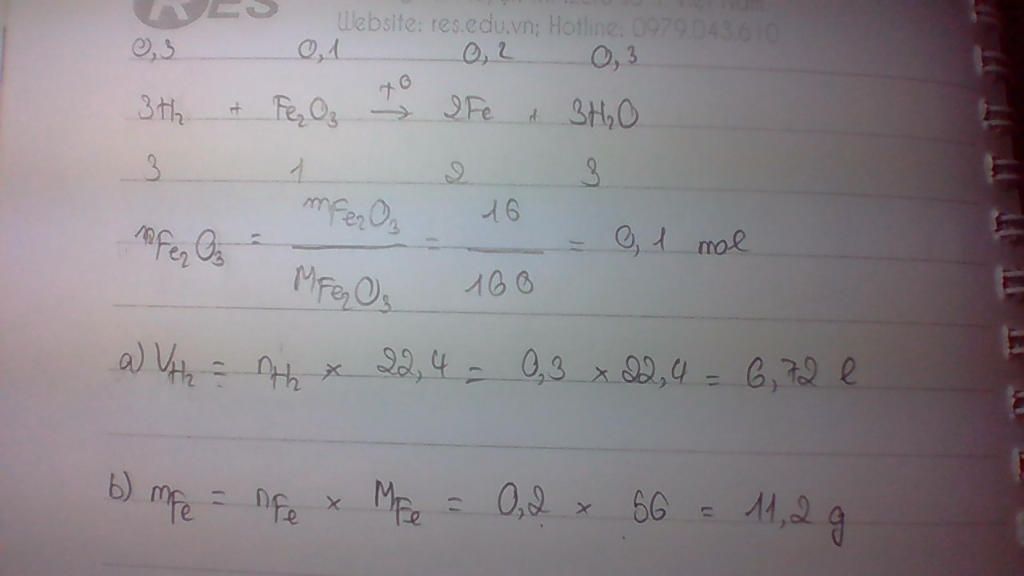 RES
Website: res.edu.vn; Hotline: 0979.043.610
0,3 0,1 0,2 0,3
3H₂ + Fe₂O₃ →(t⁰) 2Fe + 3H₂O
3 1 2 3
nFe₂O₃ = mFe₂O₃ / MFe₂O₃ = 16 / 160 = 0,1 mol
a) VH₂ = nH₂ × 22,4 = 0,3 × 22,4 = 6,72 l
b) mFe = nFe × MFe = 0,2 × 56 = 11,2 g